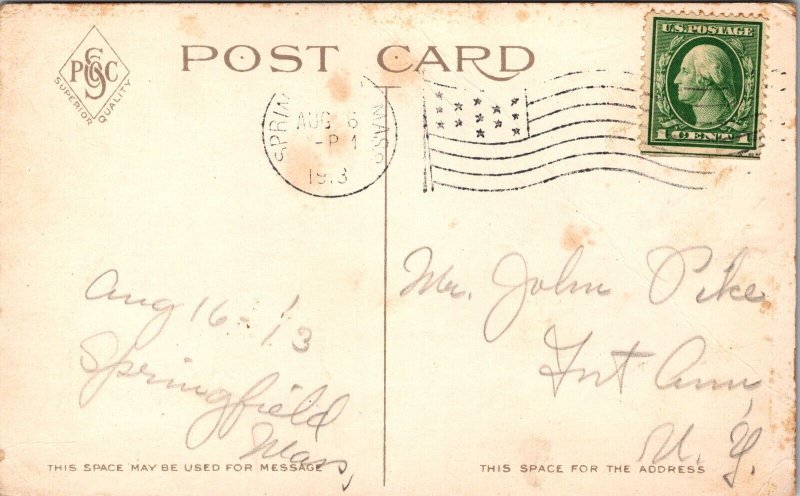 POST CARD
SUPERIOR QUALITY
P S C
SPRIN MASS
AUG 6
-P 1
1913
U.S. POSTAGE
1 CENT 1
Aug 16 - '13
Springfield
Mass,
Mr. John Pike
Fort Ann,
N. Y.
THIS SPACE MAY BE USED FOR MESSAGE
THIS SPACE FOR THE ADDRESS